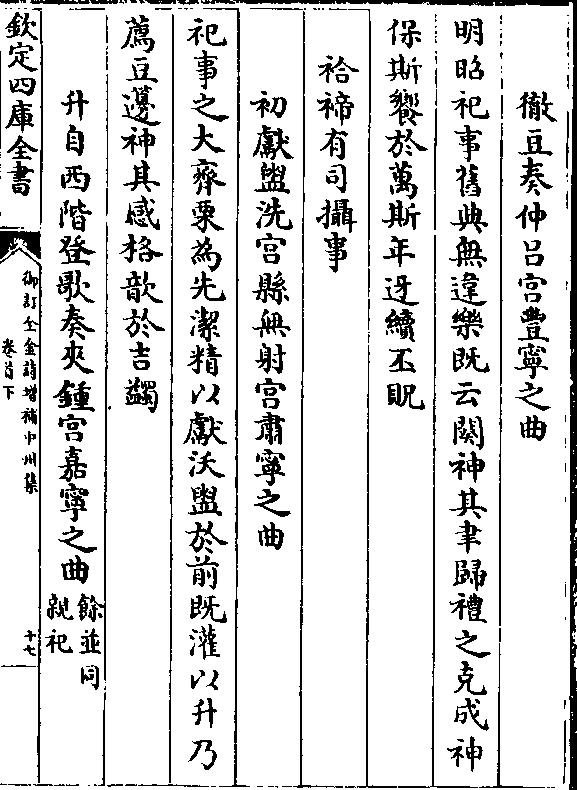 徹豆奏仲呂宮豐寧之曲
明昭祀事舊典無違樂既云闋神其聿歸禮之克成神
保斯饗於萬斯年迓續丕貺
祫禘有司攝事
初獻盥洗宮縣無射宮肅寧之曲
祀事之大齊栗為先潔精以獻沃盥於前既灌以升乃
薦豆籩神其感格歆於吉蠲
升自西階登歌奏夾鍾宮嘉寧之曲餘並同親祀
欽定四庫全書
御訂全金詩增補中州集
卷首下
十七